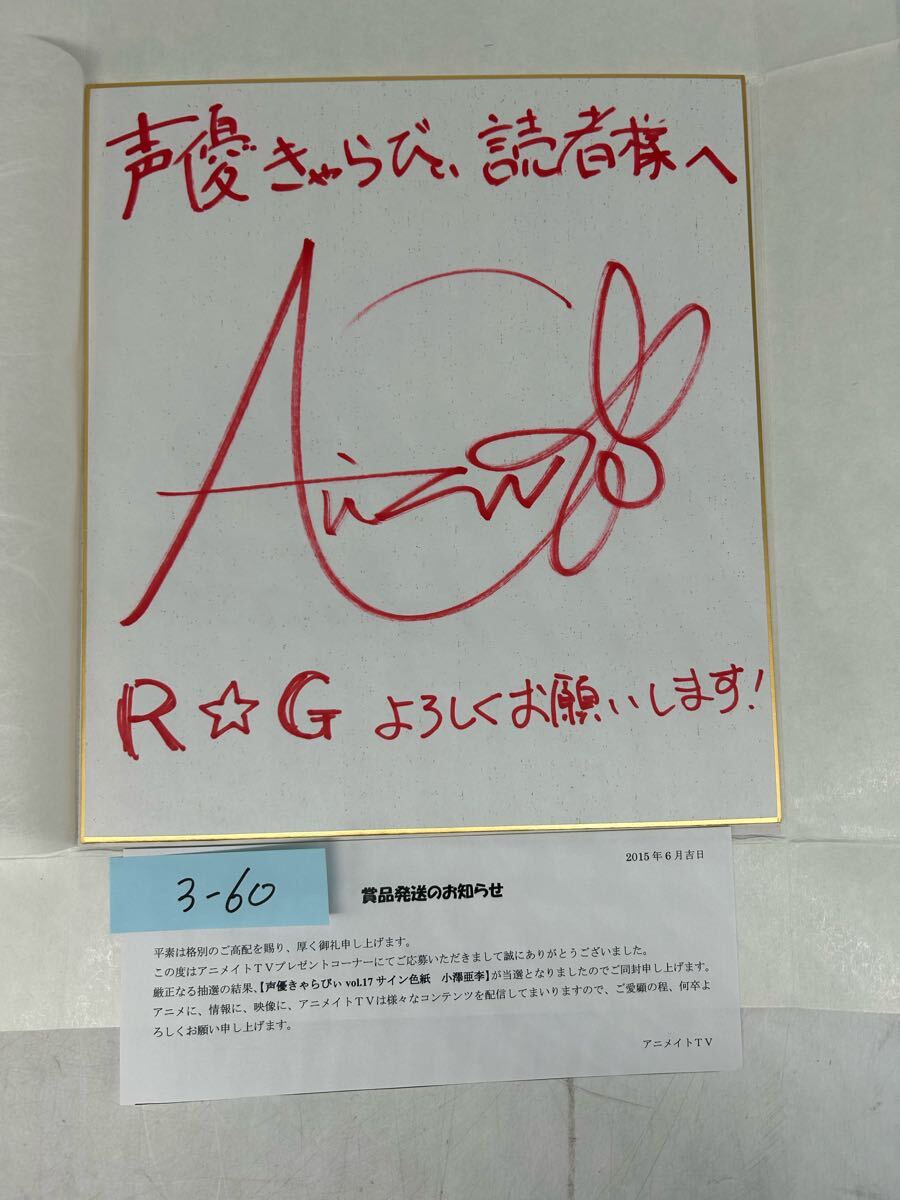 声優きゃらびぃ 読者様へ
R☆G よろしくお願いします!
3-60
2015年6月吉日
賞品発送のお知らせ
平素は格別のご高配を賜り、厚く御礼申し上げます。
この度はアニメイトTVプレゼントコーナーにてご応募いただきまして誠にありがとうございました。
厳正なる抽選の結果、【声優きゃらびぃ vol.17 サイン色紙 小澤亜李】が当選となりましたのでご同封申し上げます。
アニメに、情報に、映像に、アニメイトTVは様々なコンテンツを配信してまいりますので、ご愛顧の程、何卒よ
ろしくお願い申し上げます。
アニメイトTV